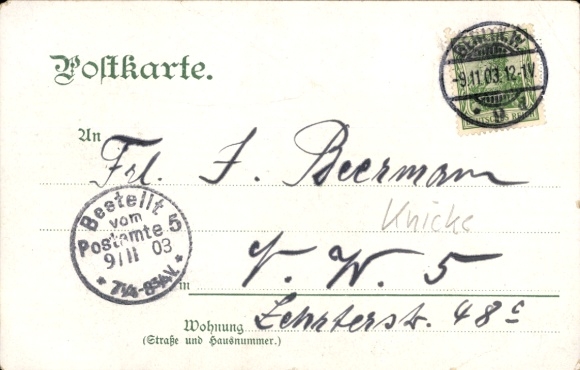 Postkarte.
BERLIN.W.
-9.11.03.12-1V
DEUTSCHES REICH
An
Frl. J. Beermann
Knicke
Bestellt
vom
Postamte 5
9/11 03
* 7¼-8¾V. *
in
N. W. 5
Wohnung
Lehrterstr. 48c
(Straße und Hausnummer.)